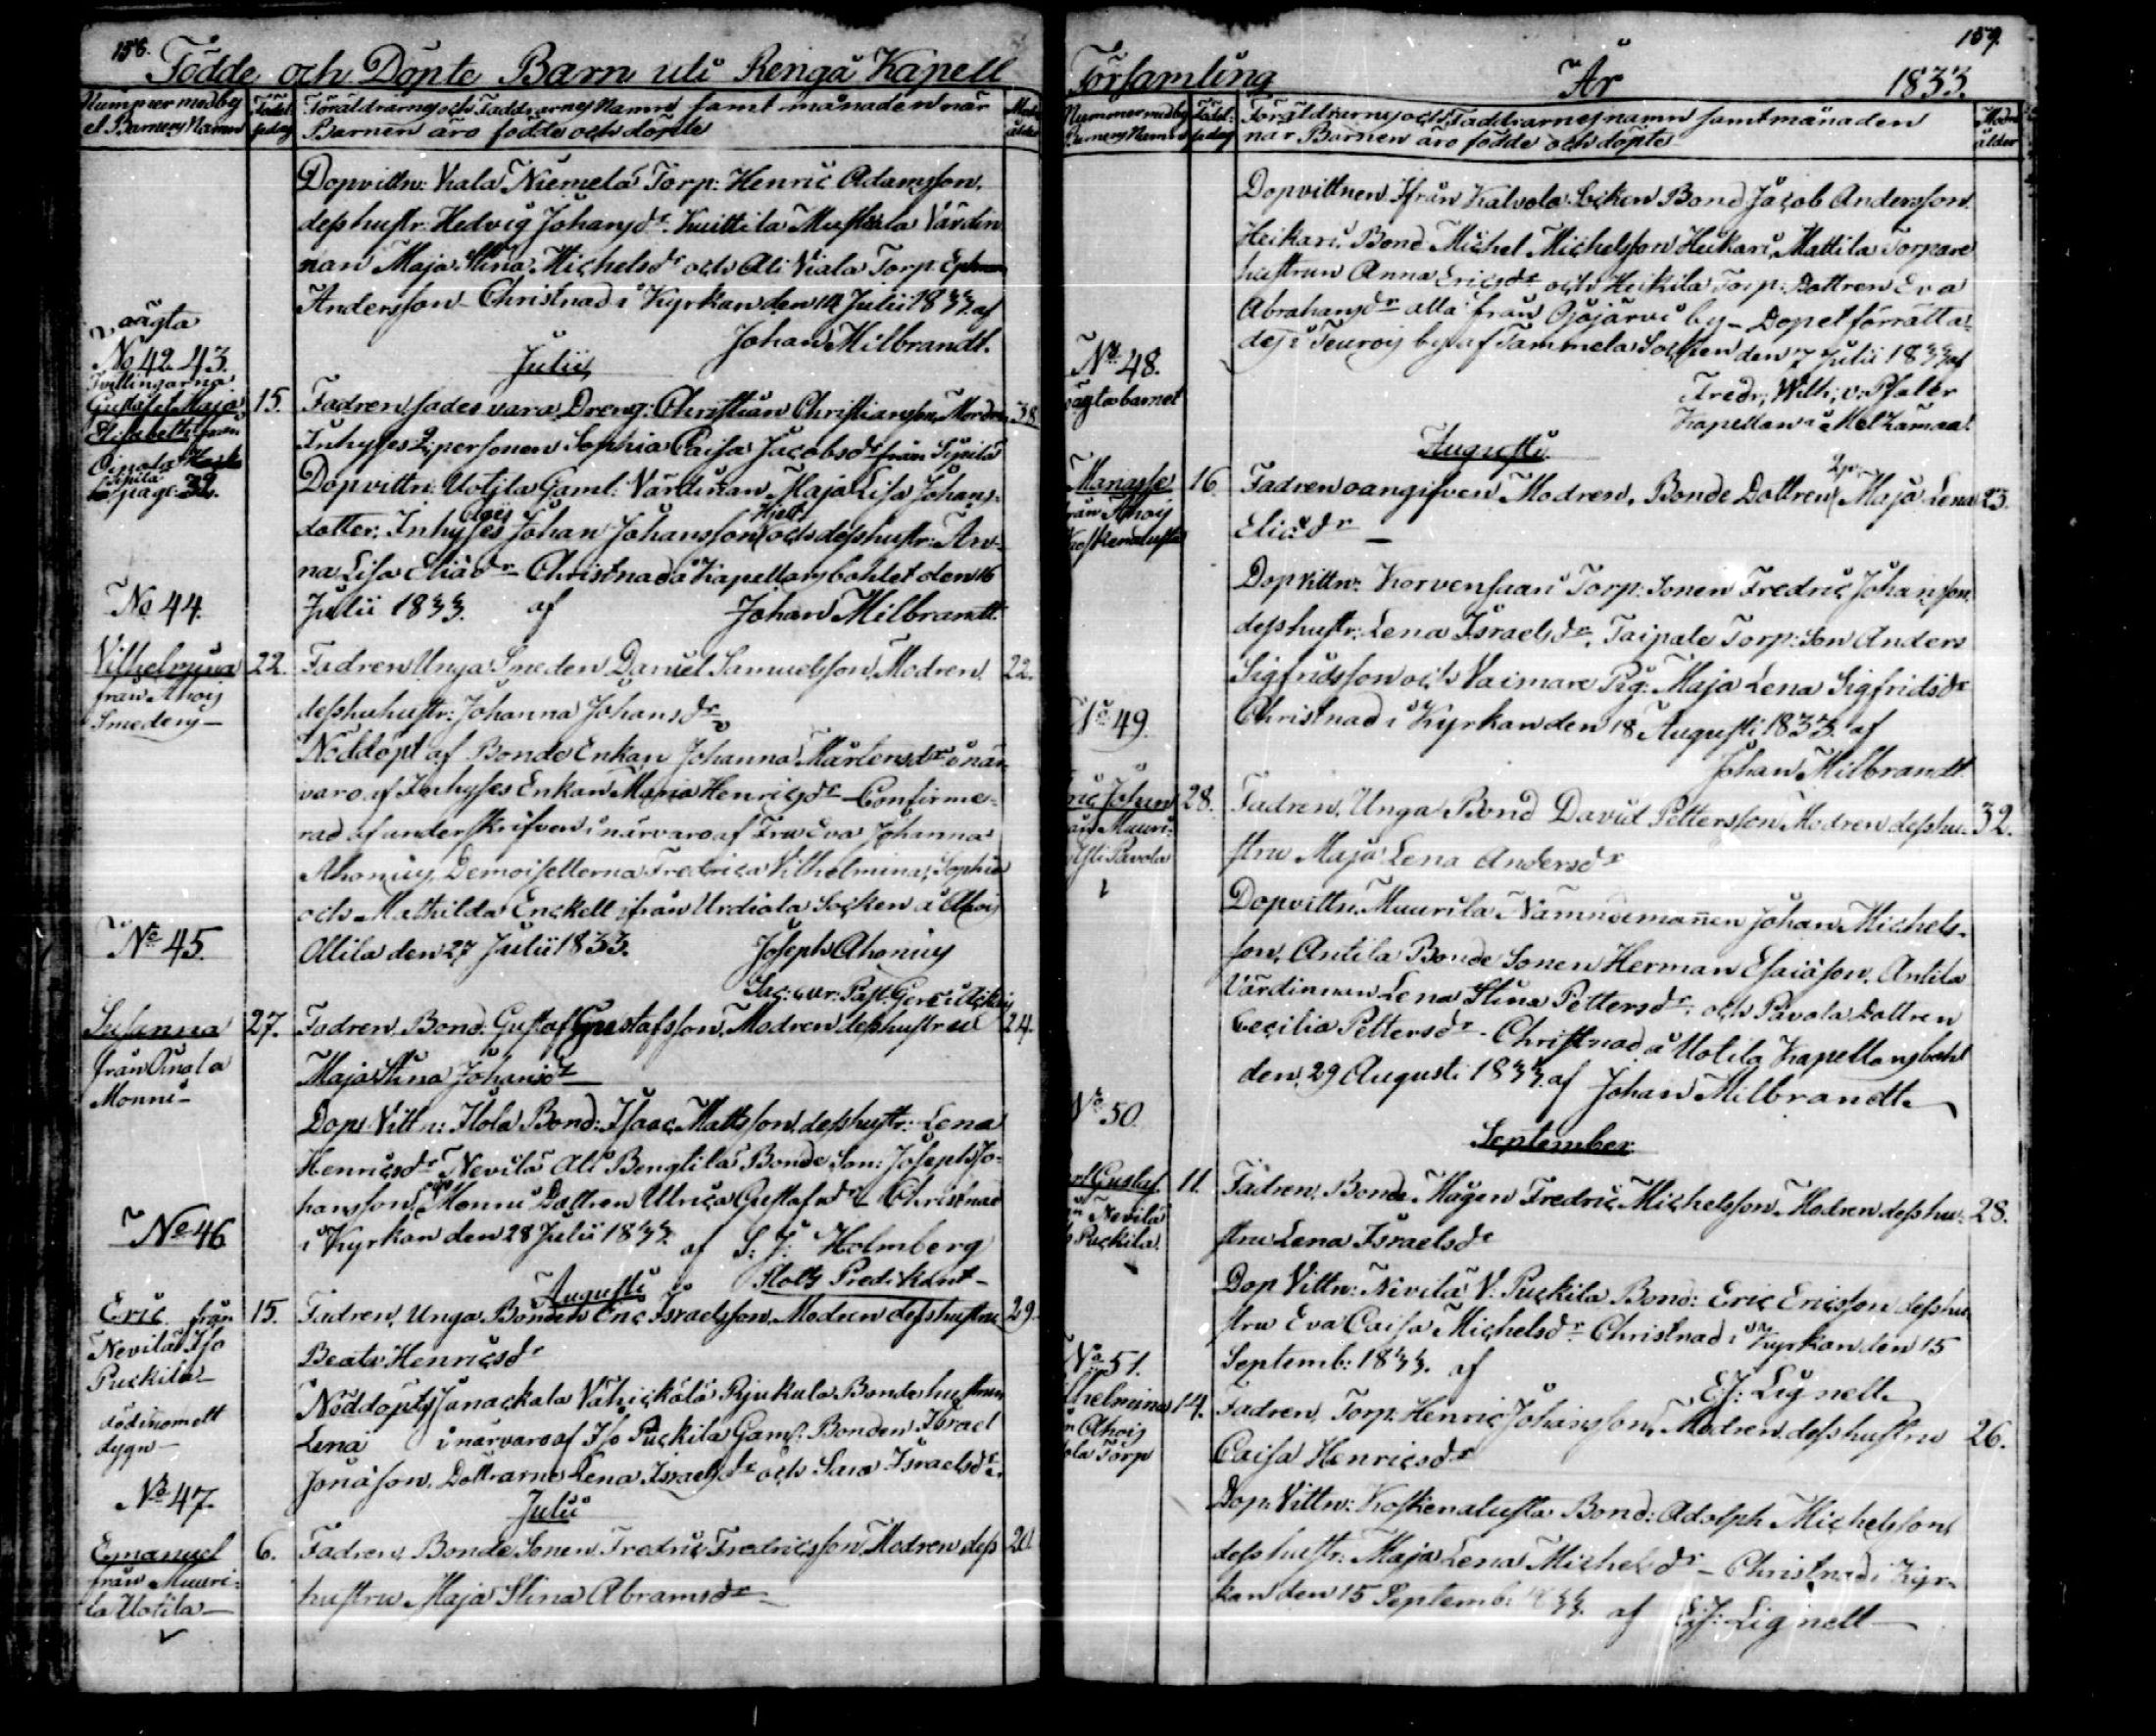 158.
Födde och Döpte Barn uti Rengå Kapell
Nummer med by
et Barnens Namn
Födel-
sedag
Föräldrarnes och Faddrarnes Namn samt månaden när
Barnen äro födde och döpte
Modr.
ålder
Dopvittn: Kala Niemelä Torp: Henric Adamsson,
desshustr: Hedvig Johansdr. Kuittila Mustiala Värdin
nan Maja Stina Michelsdr och Ali Viala Torp.
Andersson - Christnad i Kyrkan den 14 Julii 1833. af
Johan Milbrandt.
Julii
2, oägta
No 42. 43.
Tvillingarna
Gustaf et Maja
Elisabeth från
Sipilä
pag: 32.
15.
Fadren sades vara Dreng: Christian Christiansson, Modren
38.
Inhyses Qpersonen Sophia Caisa Jacobsdr från Sipilä
Dopvittn: Uotila Gaml: Värdinan Maja Lisa Johans-
dotter, Inhyses Johan Johansson och desshustr: An-
na Lisa Eliædr - Christnad å Kapellansbohlet den 16
Julii 1833. af Johan Milbrandt.
No 44.
Vilhelmina
från Ahois
Smedens -
22.
Fadren Unga Smeden Daniel Samuelsson, Modren
22.
desshuhustr: Johanna Johansdr
Nöddöpt af Bonde Enkan Johanna Mårtensdr i när-
varo af Inhyses Enkan Maria Henricsdr - Confirme-
rad af underskrifven i närvaro af Fru Eva Johanna
Ahonius, Demoisellerna Fredrica Vilhelmina, Sophia
och Mathilda Enckell ifrån Urdiala Socken å Ahois
Allila den 27 Julii 1833. Joseph Ahonius
No 45.
Susanna
från Oinala
Monni -
27.
Fadren Bond: Gustaf Gustafsson, Modren desshustru
24.
Maja Stina Johansdr
Dop: Vittn: Ilola Bond: Isaac Mattsson, desshustr: Lena
Henricsdr Nevilä Ali Bengtilä Bonde Son: Joseph Jo-
hansson, Monni Dottren Ulrica Gustafsdr - Christnad
i Kyrkan den 28 Julii 1833. af S: J: Holmberg
Slotts Predikant -
No 46
Augusti
Eric från
Nevilä Iso
Puckila
död inom ett
dygn -
15.
Fadren, Unga Bonden Eric Israelsson, Modren desshustru
29.
Beata Henricsdr
Nöddöpts Janackala Vähickälä Rjukula Bondehustrun
Lena i närvaro af Iso Puckila Gaml. Bonden Israel
Jonæson, Dottrarne Lena Israelsdr och Sara Israelsdr.
No 47.
Julii
Emanuel
från Muuri-
la Uotila -
6.
Fadren, Bonde Sonen Fredric Fredricsson, Modren dess
20.
hustru Maja Stina Abramsdr -
159.
Församling År 1833.
Nummer med by
Barnens Namn
Födel-
sedag
Föräldrarnes och Faddrarnes namn samt månaden
när Barnen äro födde och döpte
Modr.
ålder
Dopvittnen Ifrån Kalvola Socken Bond Jacob Andersson
Heikari, Bond Michel Michelsson Heikari, Mattila Torpare
hustrun Anna Ericsdr och Heikila Torp: Dottren Eva
Abrahamsdr alla från Ojajärvi by - Dopet förrätta-
des i Teurois by af Tammela Socken den 7 Julii 1833 af
Fredr: Wilh: v: Pfaler
Kapellan i
No 48.
oägta barnet
Augusti
Manasse
från Ahois
Koskenalusta
16
Fadren oangifven Modren, Bonde Dottren Maja Lena
23.
Eliædr -
Dopvittn: Korvensaari Torp: Sonen Fredric Johansson,
desshustr: Lena Israelsdr, Taipale Torp: Son Anders
Sigfridsson och Vaimare Pig: Maja Lena Sigfridsdr
Christnad i Kyrkan den 18 Augusti 1833. af
Johan Milbrandt
No 49.
ric Johan
från Muuri-
Pavola
28.
Fadren, Unga Bond David Pettersson Modren desshu-
32.
stru Maja Lena Andersdr
Dopvittn: Muurila Nämndemannen Johan Michels-
son, Antila Bonde Sonen Herman Esaiæson, Antila
Värdinnan Lena Stina Pettersdr, och Pavola Dottren
Cecilia Pettersdr - Christnad å Uotila Kapellansbohl
den 29 Augusti 1833. af Johan Milbrandt.
No 50
September
Gustaf
Nevilä
Puckila
11.
Fadren, Bonde Mågen Fredric Michelsson, Modren desshu-
28.
stru Lena Israelsdr
Dop Vittn: Nevilä V: Puckila Bond: Eric Ericsson desshu
stru Eva Caisa Michelsdr Christnad i Kyrkan den 15
Septemb: 1833. af
E: J: Lignell.
No 51.
lhelmina
Ahois
Torp
14.
Fadren, Torp: Henric Johansson, Modren desshustru
26.
Caisa Henricsdr
Dop: Vittn: Koskenalusta Bond: Adolph Michelsson,
desshustr: Maja Lena Michelsdr - Christnad i Kyr-
kan den 15 Septemb: 1833. af E: J: Lignell -